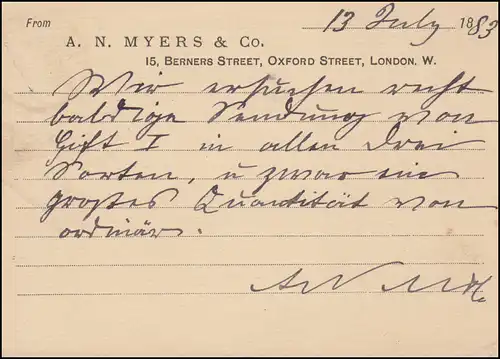 From
13 July 1883
A. N. MYERS & Co.
15, BERNERS STREET, OXFORD STREET, LONDON, W.
Wir ersuchen recht
baldige Sendung von
Heft I in allen drei
Sorten, u zwar ein
großes Quantität von
ordinär.